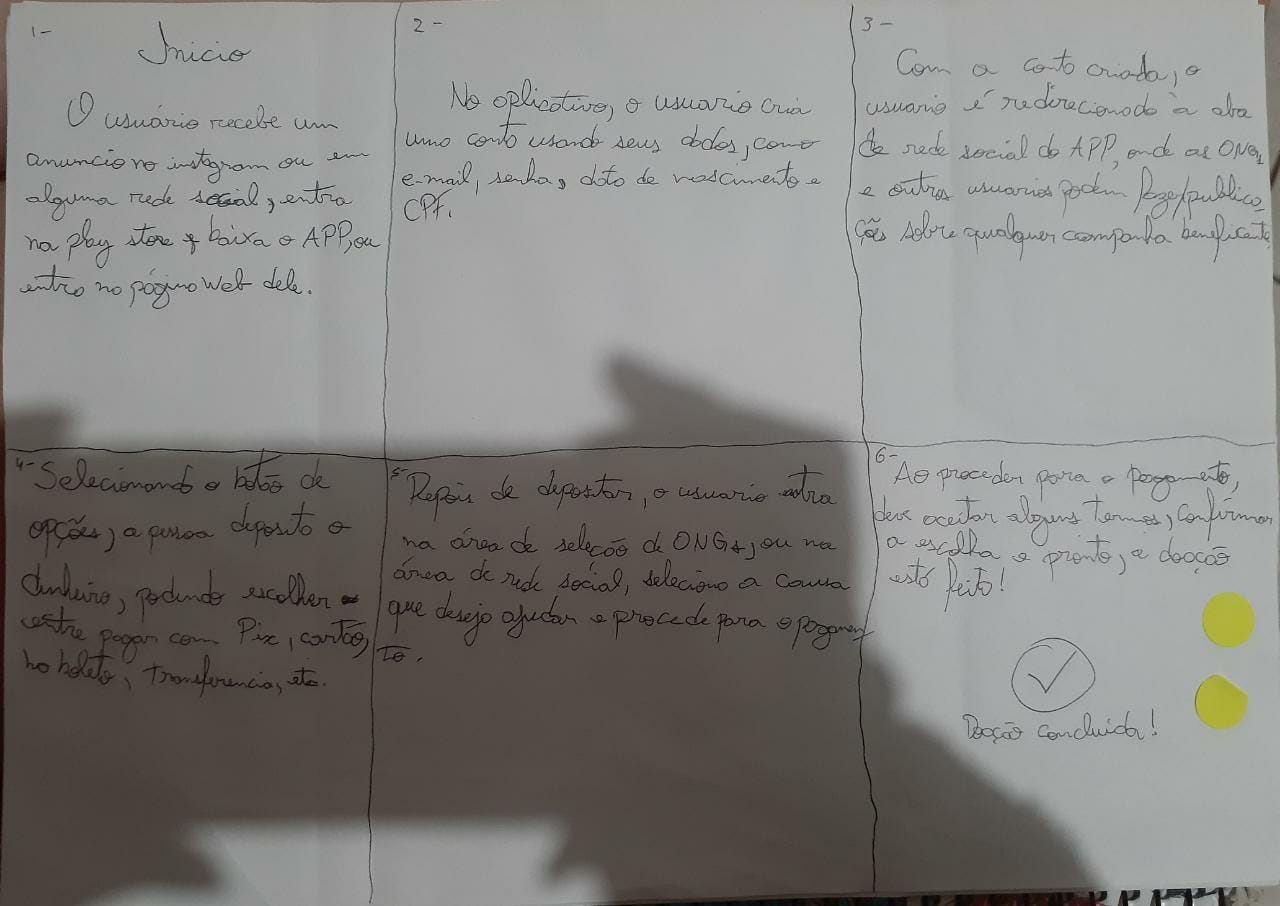 1-
Inicio
O usuário recebe um
anuncio no instagram ou em
alguma rede social, entra
na play store e baixa o APP, ou
entra na página Web dele.
2-
No aplicativo, o usuario cria
uma conta usando seus dados, como
e-mail, senha, data de nascimento e
CPF.
3-
Com a conta criada, o
usuario é redirecionado à aba
de rede social do APP, onde as ONGs
e outros usuarios podem fazer publica-
ções sobre qualquer campanha beneficente,
4- Selecionando o botão de
opções, a pessoa deposita o
dinheiro, podendo escolher
entre pagar com Pix, cartão,
no boleto, transferencia, etc.
5- Depois de depositar, o usuario entra
na área de seleção de ONGs, ou na
área de rede social, seleciona a causa
que deseja ajudar e procede para o pagamen
to.
6-
Ao proceder para o pagamento,
deve aceitar alguns termos, confirmar
a escolha e pronto, a doação
está feita!
Doação concluida!